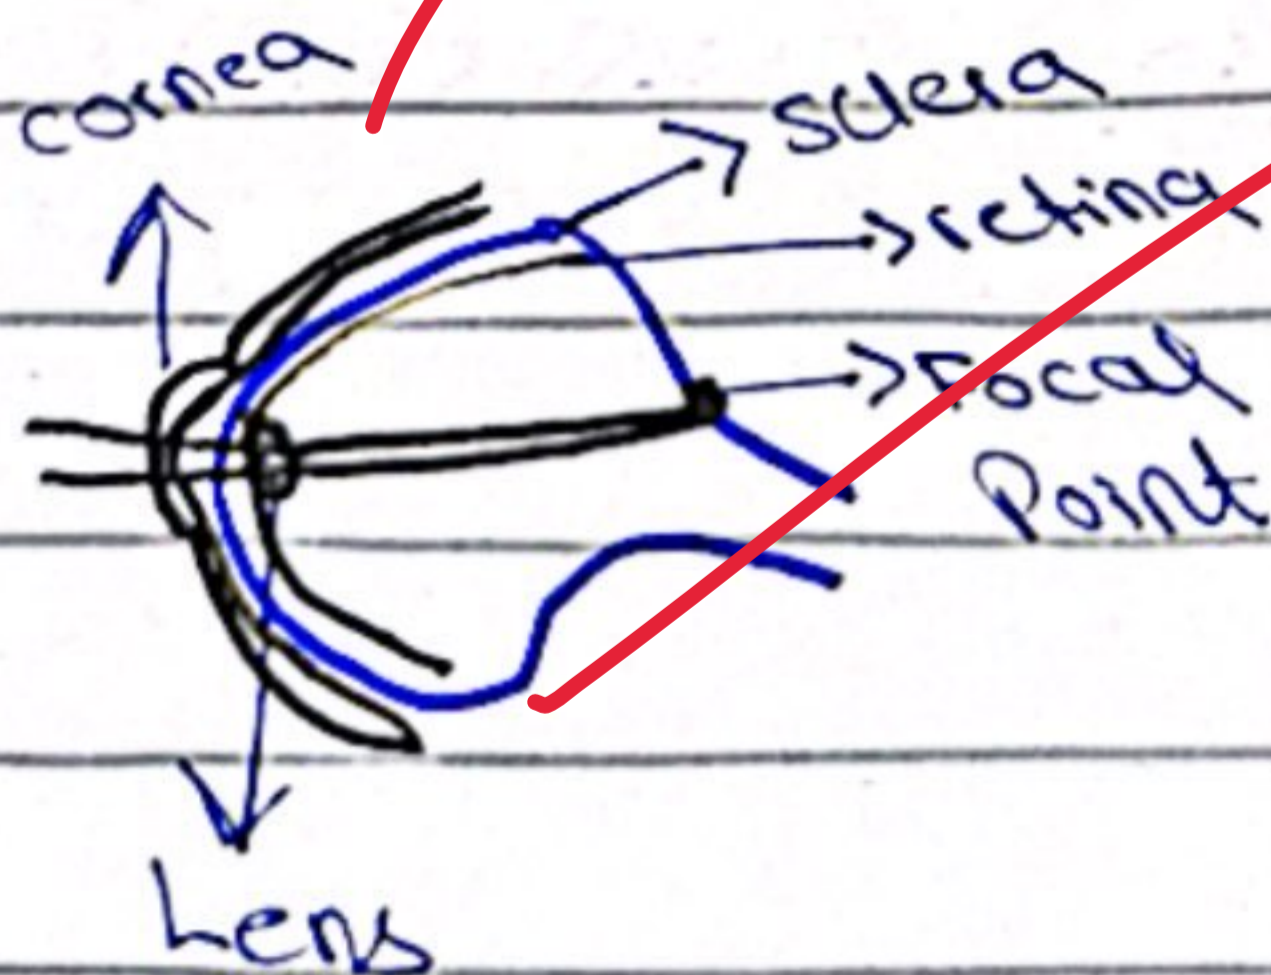 cornea
sclera
retina
Focal
Point
Lens